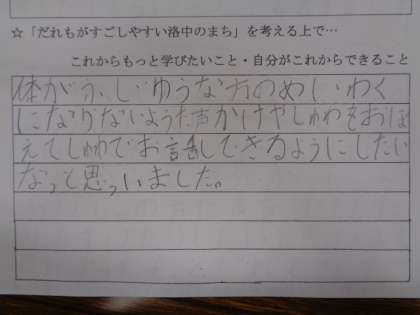 ☆「だれもがすごしやすい洛中のまち」を考える上で…
これからもっと学びたいこと・自分がこれからできること
体がふじゆうな方のめいわく
にならないような声かけやしゅわをおぼ
えてしゅわでお話しできるようにしたい
なっと思っいました。